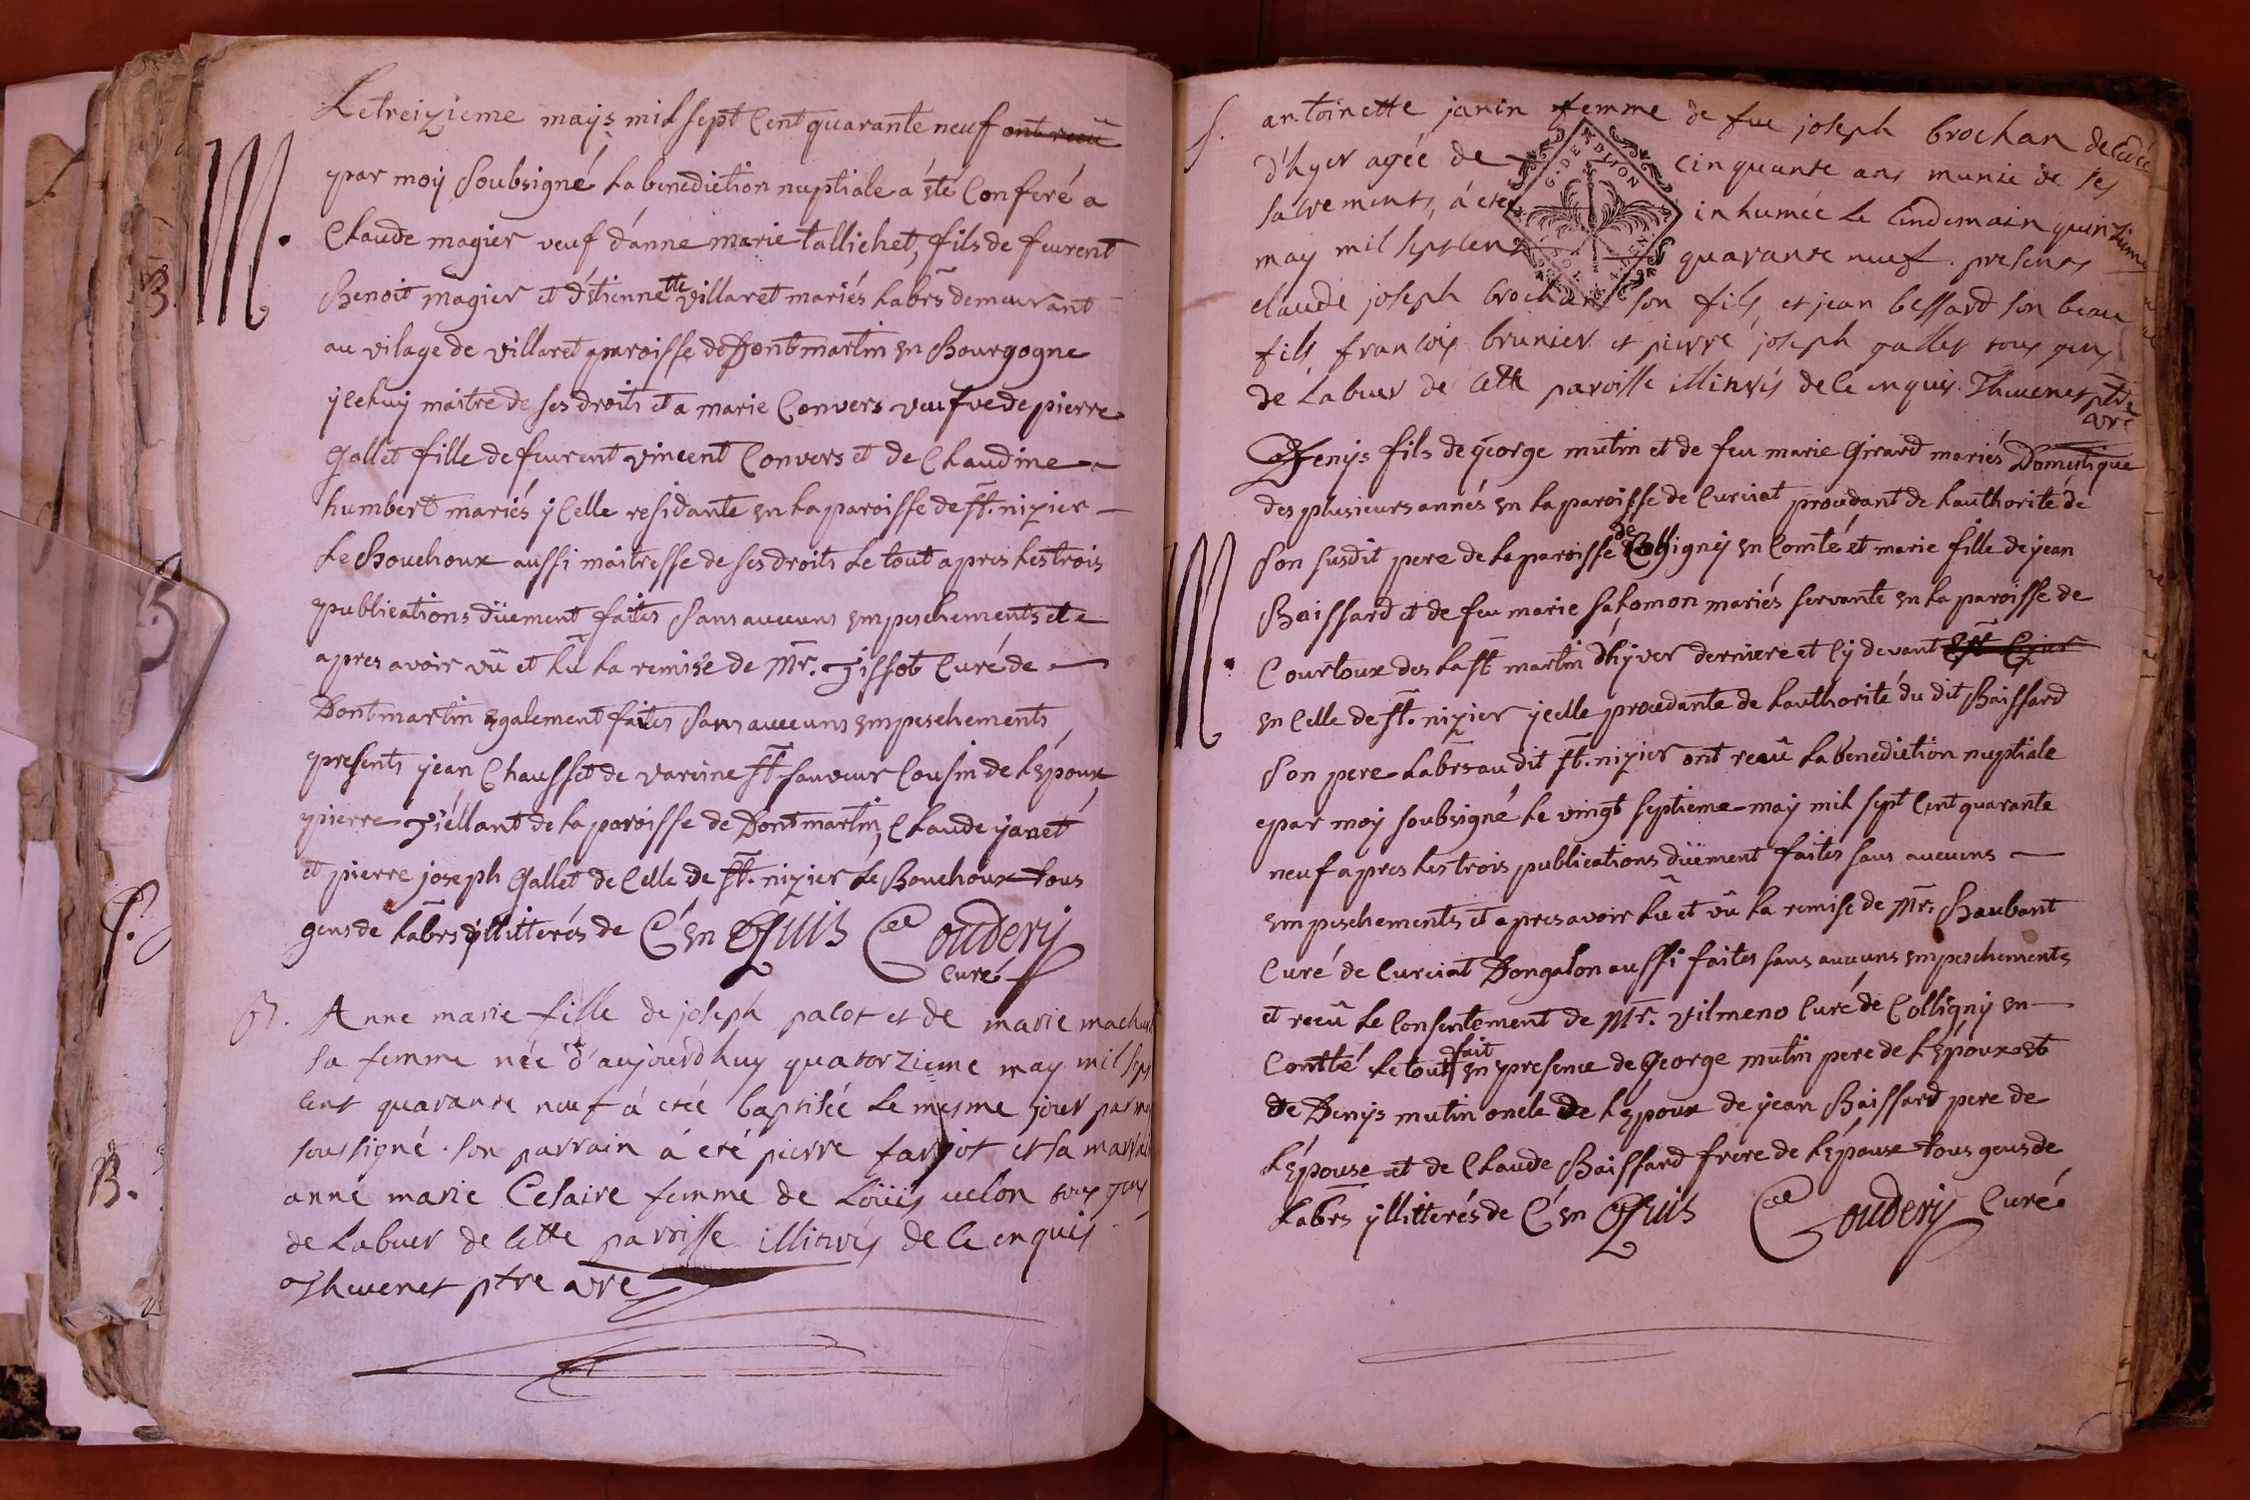 M.
Le treizieme mays mil sept Cent quarante neuf ont recû
par moÿ Soubsigné La benediction nuptiale a été Conferé a
Claude magier veuf d'anne marie tallichet, fils de feurent
Benoit magier et d'étiennette villaret mariés Labrs demeurant
au vilage de villaret paroisse de Dontmartin en Bourgogne
ÿceluÿ maitre de ses droits et a marie Convers veufve de pierre
Gallet fille de feurent vincent Convers et de Claudine
humbert mariés ÿCelle residante en La paroisse de st. nizier
Le Bouchoux aussi maitresse de ses droits Le tout apres Les trois
publications düement faites Sans aucuns empeschements et
apres avoir vû et Lû La remise de Mr. Tissot Curé de
Dontmartin egalement faites Sans aucuns empeschements
presents jean Chausset de varine st sauveur Cousin de L'époux
pierre de La paroisse de Dontmartin, Claude janet
et pierre joseph Gallet de Celle de st. nizier Le Bouchoux tous
gens de Labrs ÿllitterés de Cé en Quis Coudery
Curé
B. Anne marie fille de joseph pacot et de marie
sa femme née d'aujourdhuy quatorzieme may mil sept
cent quarante neuf á eté baptisée le mesme jour par
soussigné. son parrain á eté pierre farjot et sa
anne marie Cesaire femme de Loüis uelon tous gens
de Labeur de Cette paroisse illitrés de Ce enquis
Thevenet ptre
S. antoinette janin femme de feu joseph brochan
d'hyer agée de cinquante ans munie de ses
sacrements, á eté inhumée Le Lendemain quinzieme
may mil sept cent quarante neuf. presents
G. DE ADITION
claude joseph brochan son fils, et jean bessard son beau
fils, francois brunier et pierre joseph gallet tous gens
de Labeur de Cette paroisse illitrés de Ce enquis. Thevenet ptre
M.
Denÿs fils de George mutin et de feu marie Girard mariés Domestique
des plusieurs annés en La paroisse de Curciat procedant de L'authorité de
Son susdit pere de La paroisse de Colligny en Comté et marie fille de jean
Baissard et de feu marie Salomon mariés servante en La paroisse de
Courtoux des La st martin d'hÿver derniere et Cÿ devant
en Celle de st. nizier ÿcelle procedante de L'authorité du dit Baissard
Son pere Labrs au dit st. nizier ont recû La benediction nuptiale
par moÿ soubsigné Le vingt septieme maÿ mil sept Cent quarante
neuf apres Les trois publications düement faites sans aucuns
empeschements et apres avoir Lû et vû La remise de Mr. Baubant
Curé de Curciat Dongalon aussi faites sans aucuns empeschements
et recû Le Consentement de Mr. vilmeno Curé de Colligny en
Comté Le tout fait en presence de George mutin pere de L'époux et
de Denÿs mutin oncle de L'époux de jean Baissard pere de
L'épouse et de Claude Baissard frere de L'épouse tous gens de
Labrs ÿllitterés de Cé en Quis Coudery Curé